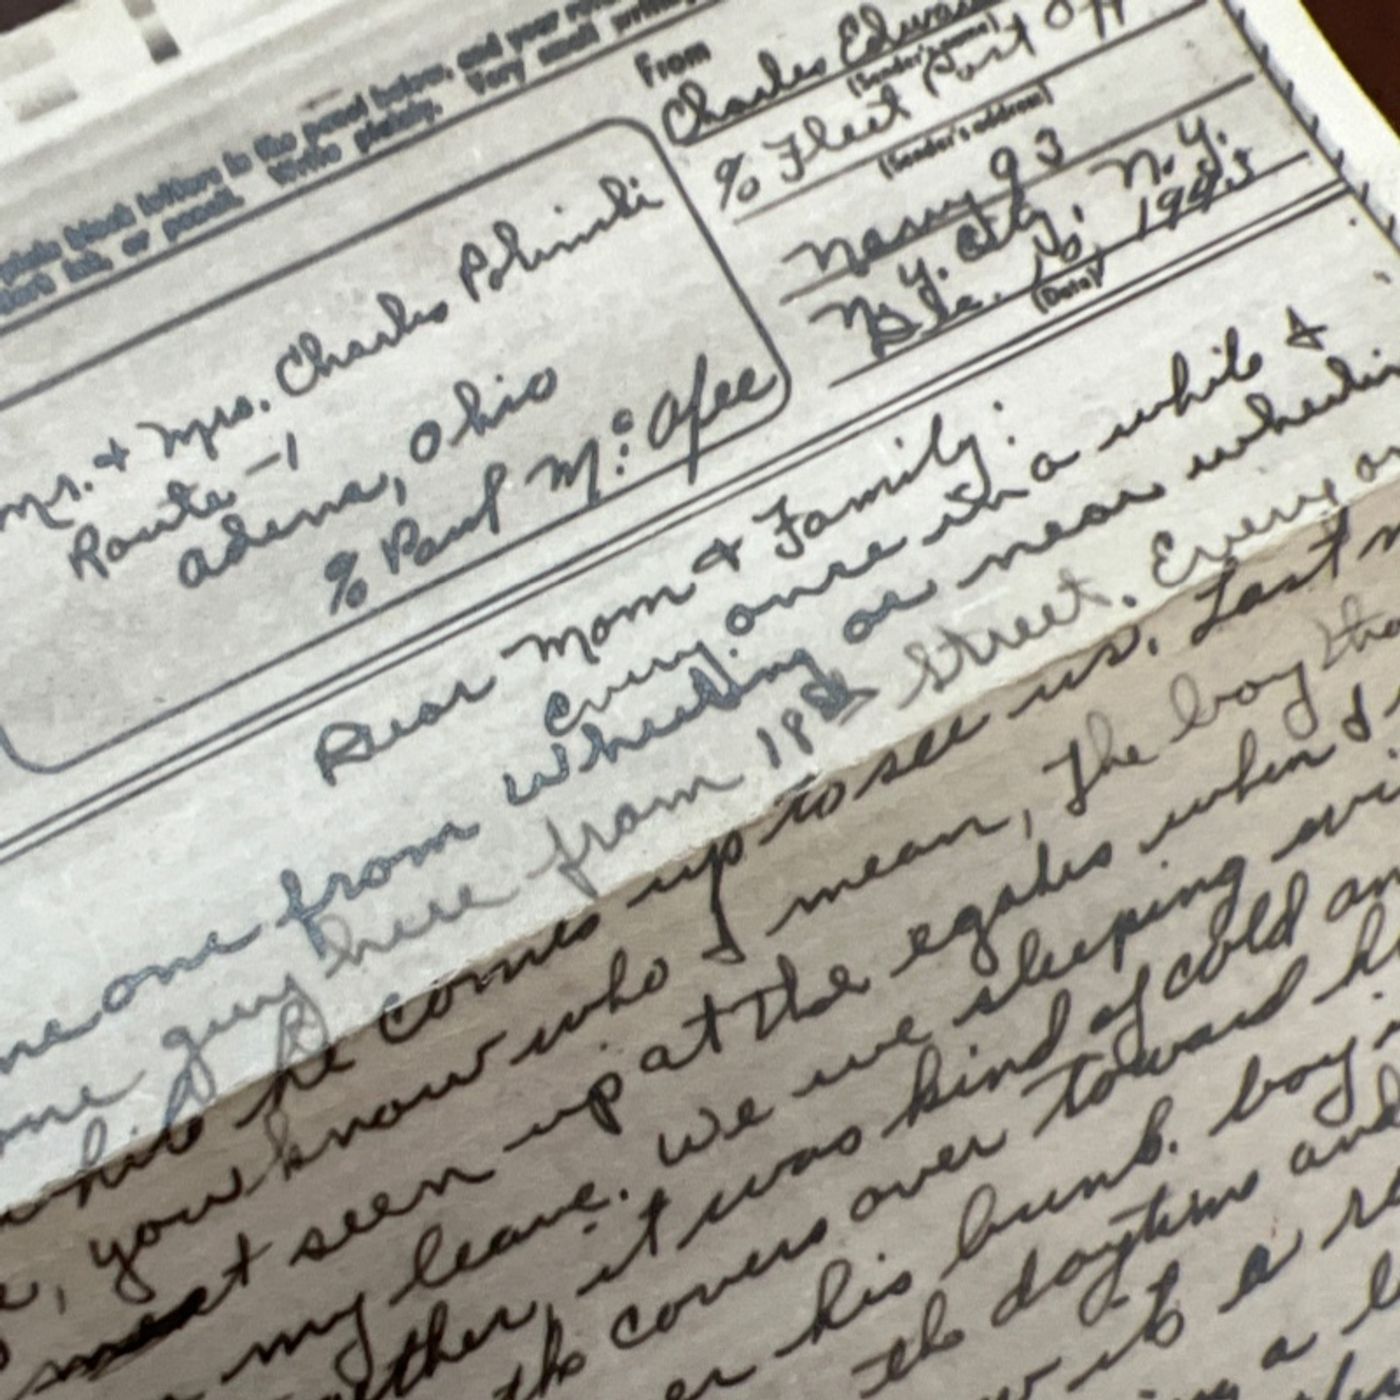 plain block letters in the panel below, and your
dark ink, or pencil. Write plainly. Very small writing
Mr. & Mrs. Charles
Route -1
Adena, Ohio
% Paul Mc Afee
From
Charles Edward
(Sender's name)
% Fleet Post Off
(Sender's address)
Navy 93
N.Y. City, N.Y.
1943
(Date)
Dear Mom & Family:
Every once in a while &
one from Wheeling or near wheelin
guy here from 18th Street. Every on
while he comes up to see us. Last n
you know who I mean, The boy tha
met seen up at the egales when I
my leave. We we sleeping
it was kind of cold an
the covers over toward h
his bunk. boy
the daytime and
it a
a